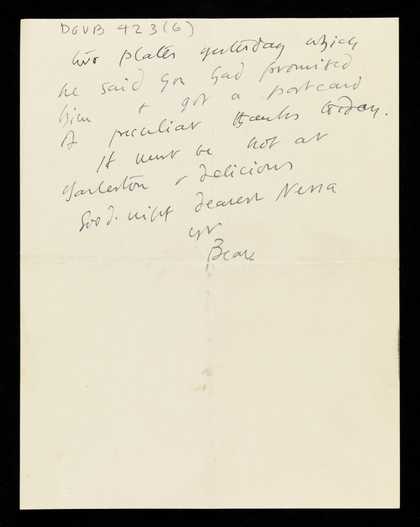 DGVB 423(6)
two plates yesterday which
he said you had promised
him & got a postcard
of peculiar thanks today.
It must be hot at
Charleston & delicious
Good-night dearest Nessa
yr
Bear